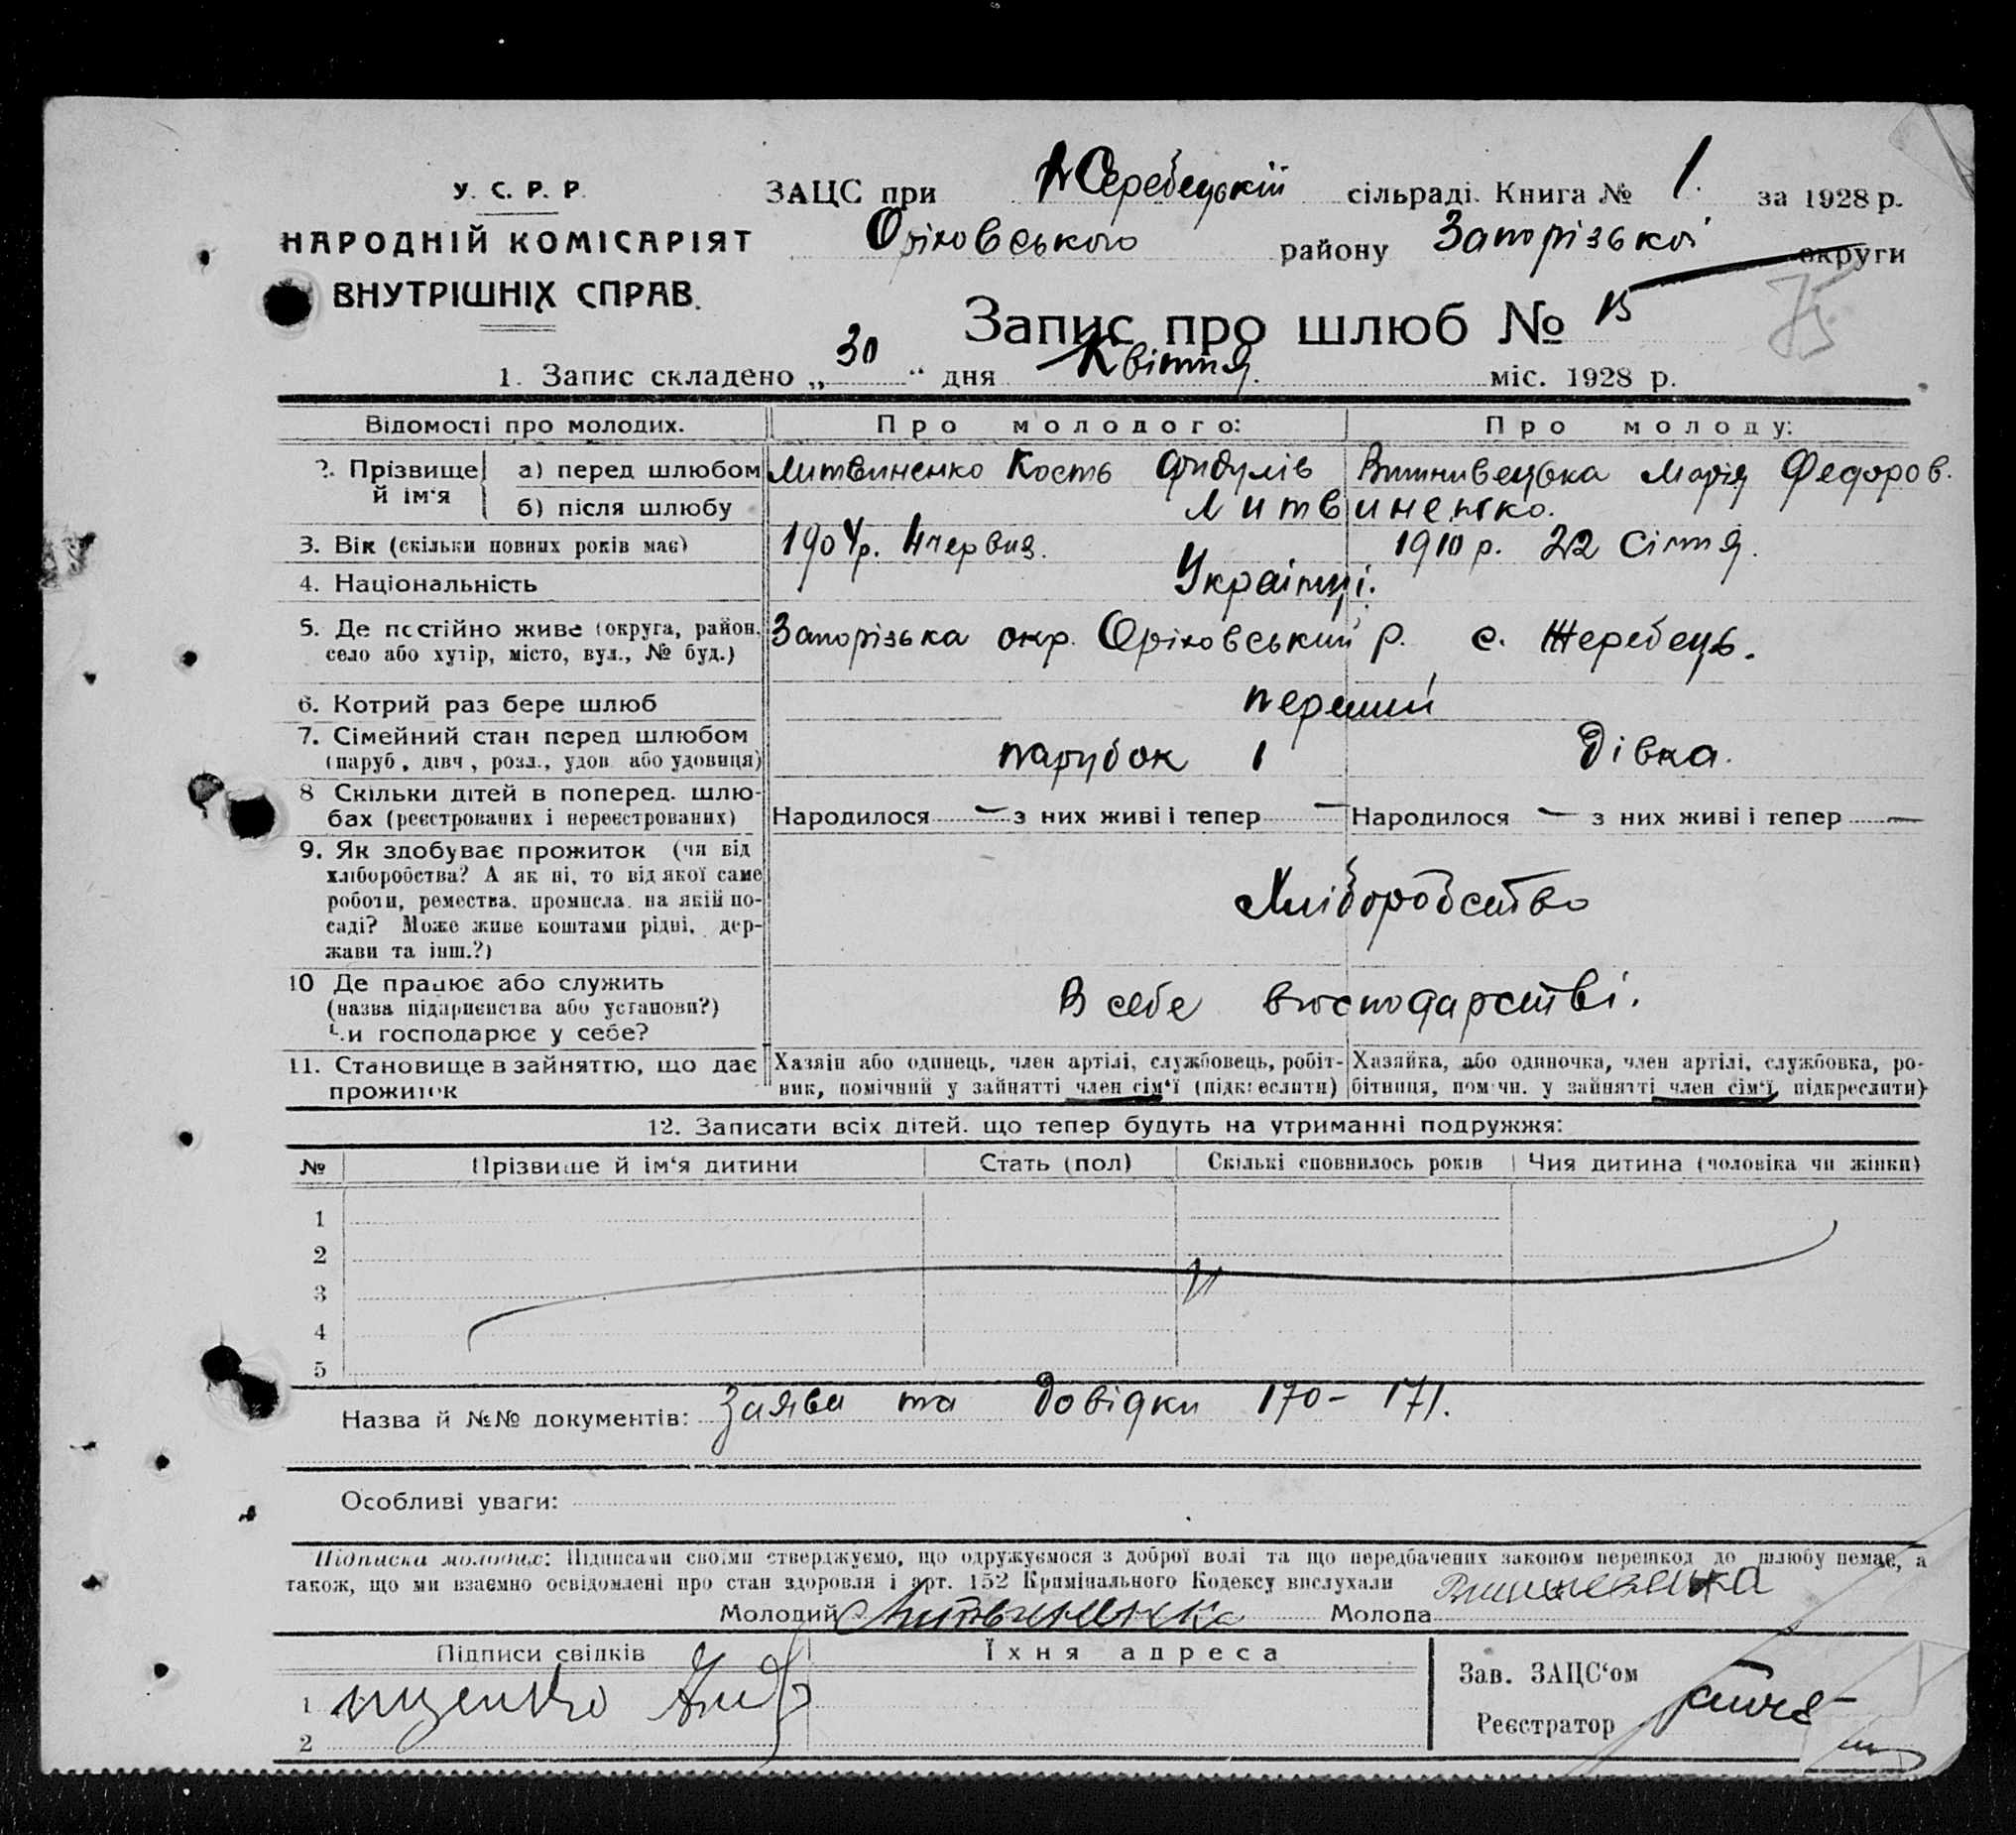 У. С. Р. Р.
НАРОДНІЙ КОМІСАРІЯТ
ВНУТРІШНІХ СПРАВ.
ЗАЦС при Жеребецькій сільраді. Книга № 1. за 1928 р.
Оріховського району Запорізької округи
Запис про шлюб № 15
75
1. Запис складено „30“ дня Квітня. міс. 1928 р.
Відомості про молодих. Про молодого: Про молоду:
2. Прізвище й ім‘я а) перед шлюбом Литвиненко Кость Вишнивецька Марія Федоров.
б) після шлюбу Литвиненко.
3. Вік (скільки повних років має) 1904р. 4 червня. 1910 р. 22 Січня.
4. Національність Українці.
5. Де постійно живе (округа, район, село або хутір, місто, вул., № буд.) Запорізька окр. Оріховський р. с. Жеребець.
6. Котрий раз бере шлюб перший
7. Сімейний стан перед шлюбом (паруб., дівч., розл., удов. або удовиця) парубок 1 Дівка.
8 Скільки дітей в поперед. шлюбах (реєстрованих і нереєстрованих) Народилося — з них живі і тепер — Народилося — з них живі і тепер —
9. Як здобуває прожиток (чи від хліборобства? А як ні, то від якої саме роботи, ремества, промисла, на якій посаді? Може живе коштами рідні, держави та інш.?) Хліборобство
10 Де працює або служить (назва підприємства або установи?) Чи господарює у себе? В себе вгосподарстві.
11. Становище в зайняттю, що дає прожиток Хазяїн або одинець, член артілі, службовець, робітник, помічний у зайнятті член сім‘ї (підкреслити) Хазяйка, або одиночка, член артілі, службовка, робітниця, помічн. у зайнятті член сім‘ї, підкреслити)
12. Записати всіх дітей, що тепер будуть на утриманні подружжя:
№ Прізвище й ім‘я дитини Стать (пол) Скількі сповнилось років Чия дитина (чоловіка чи жінки)
1
2
3
4
5
Назва й №№ документів: Заяви та Довідки 170 – 171.
Особливі уваги:
Підписка молодих: Підписами своїми стверджуємо, що одружуємося з доброї волі та що передбачених законом перешкод до шлюбу немає, а
також, що ми взаємно освідомлені про стан здоровля і арт. 152 Кримінального Кодексу вислухали
Молодий Литвиненко Молода
Підписи свідків Їхня адреса
1
2
Зав. ЗАЦС‘ом
Реєстратор